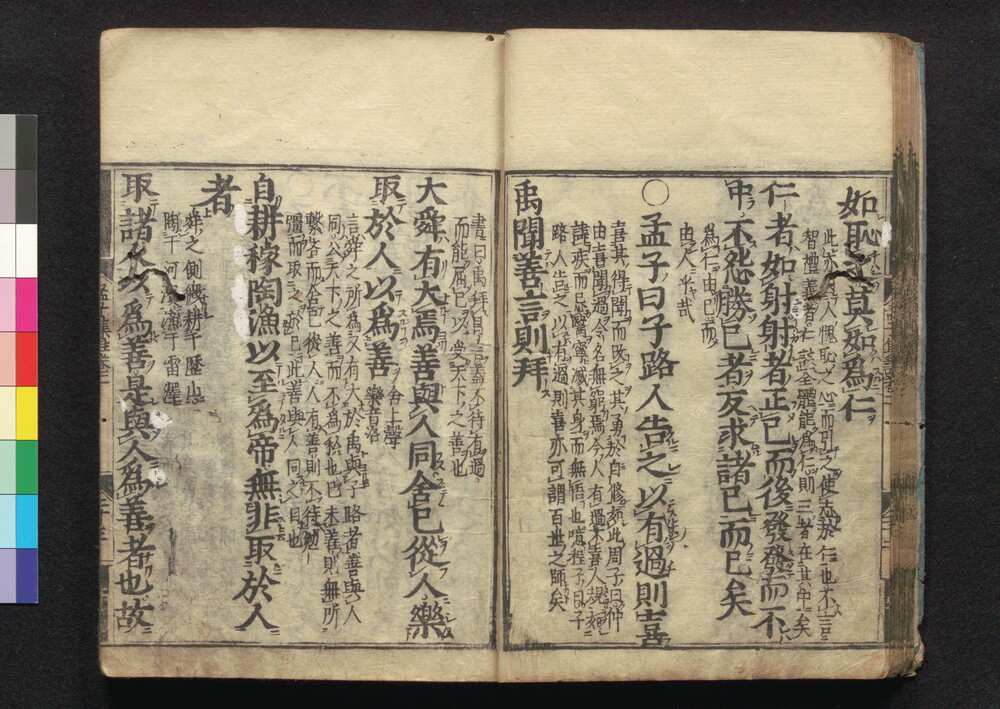 如恥之莫如為仁
此亦因人愧恥之心而引之使志於仁也不言
智禮義者仁該全體能為仁則三者在其中矣
仁者如射射者正己而後發發而不
中不怨勝己者反求諸己而已矣
為仁由己而
由人乎哉
○孟子曰子路人告之以有過則喜
喜其得聞而改之其勇於自修如此周子曰仲
由喜聞過令名無窮焉今人有過不喜人規如
諱疾而忌醫寧滅其身而無悟也噫程子曰子
路人告之以有過則喜亦可謂百世之師矣
禹聞善言則拜
書曰禹拜昌言蓋不待有過
而能屈己以受天下之善也
大舜有大焉善與人同舍己從人樂
取於人以為善
舍上聲
樂音洛
言舜之所為又有大於禹與子路者善與人
同公天下之善而不為私也己未善則無所
繫吝而舍己從人人有善則不待勉
彊而取之於己此善與人同之目也
自耕稼陶漁以至為帝無非取於人
者
舜之側微耕于歷山
陶于河濱漁于雷澤
取諸人以為善是與人為善者也故